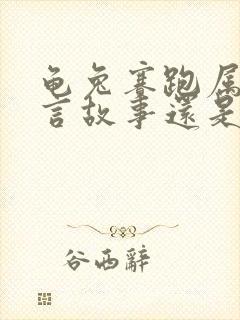 龟兔赛跑属
言故事還是
谷西辭